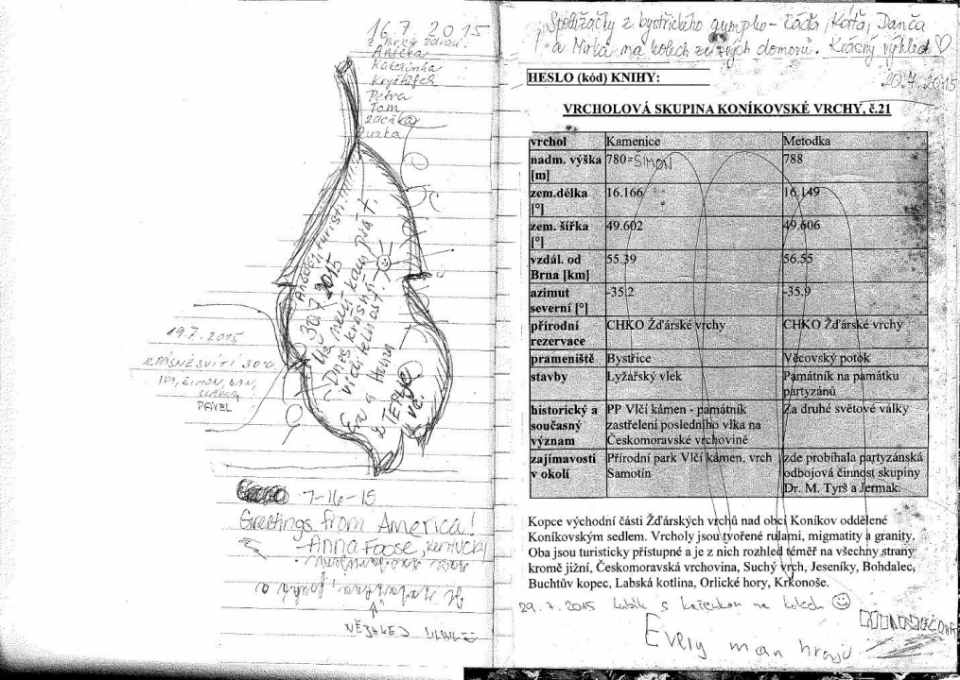 16.7.2015
Anička
Kateřinka
Kryštofek
Petra
Tom
19.7.2015
30°C
ŠIMON, DAN,
PAVEL
30.7.2015
Dnes
viditelnost
Eva a Honza
z TEPLYC
7-16-15
Greetings from America!
- Anna Foose, Kentucky
z bystřického gymplu - Káťa, Danča
a Mirka na kolech ze svých domovů. Krásný výhled ♡
20.7.2015
HESLO (kód) KNIHY:
VRCHOLOVÁ SKUPINA KONÍKOVSKÉ VRCHY, č.21
vrchol Kamenice Metodka
nadm. výška 780=ŠIMON 788
[m]
zem.délka 16.166 16.149
[°]
zem. šířka 49.602 49.606
[°]
vzdál. od 55.39 56.55
Brna [km]
azimut -35.2 -35.9
severní [°]
přírodní CHKO Žďárské vrchy CHKO Žďárské vrchy
rezervace
prameniště Bystřice Věcovský potok
stavby Lyžařský vlek Památník na památku
partyzánů
historický a PP Vlčí kámen - památník Za druhé světové války
současný zastřelení posledního vlka na
význam Českomoravské vrchovině
zajímavosti Přírodní park Vlčí kámen, vrch zde probíhala partyzánská
v okolí Samotín odbojová činnost skupiny
Dr. M. Tyrš a Jermak.
Kopce východní části Žďárských vrchů nad obcí Koníkov oddělené
Koníkovským sedlem. Vrcholy jsou tvořené rulami, migmatity a granity.
Oba jsou turisticky přístupné a je z nich rozhled téměř na všechny strany
kromě jižní, Českomoravská vrchovina, Suchý vrch, Jeseníky, Bohdalec,
Buchtův kopec, Labská kotlina, Orlické hory, Krkonoše.
29.7.2015 s na kolech ☺
Every man